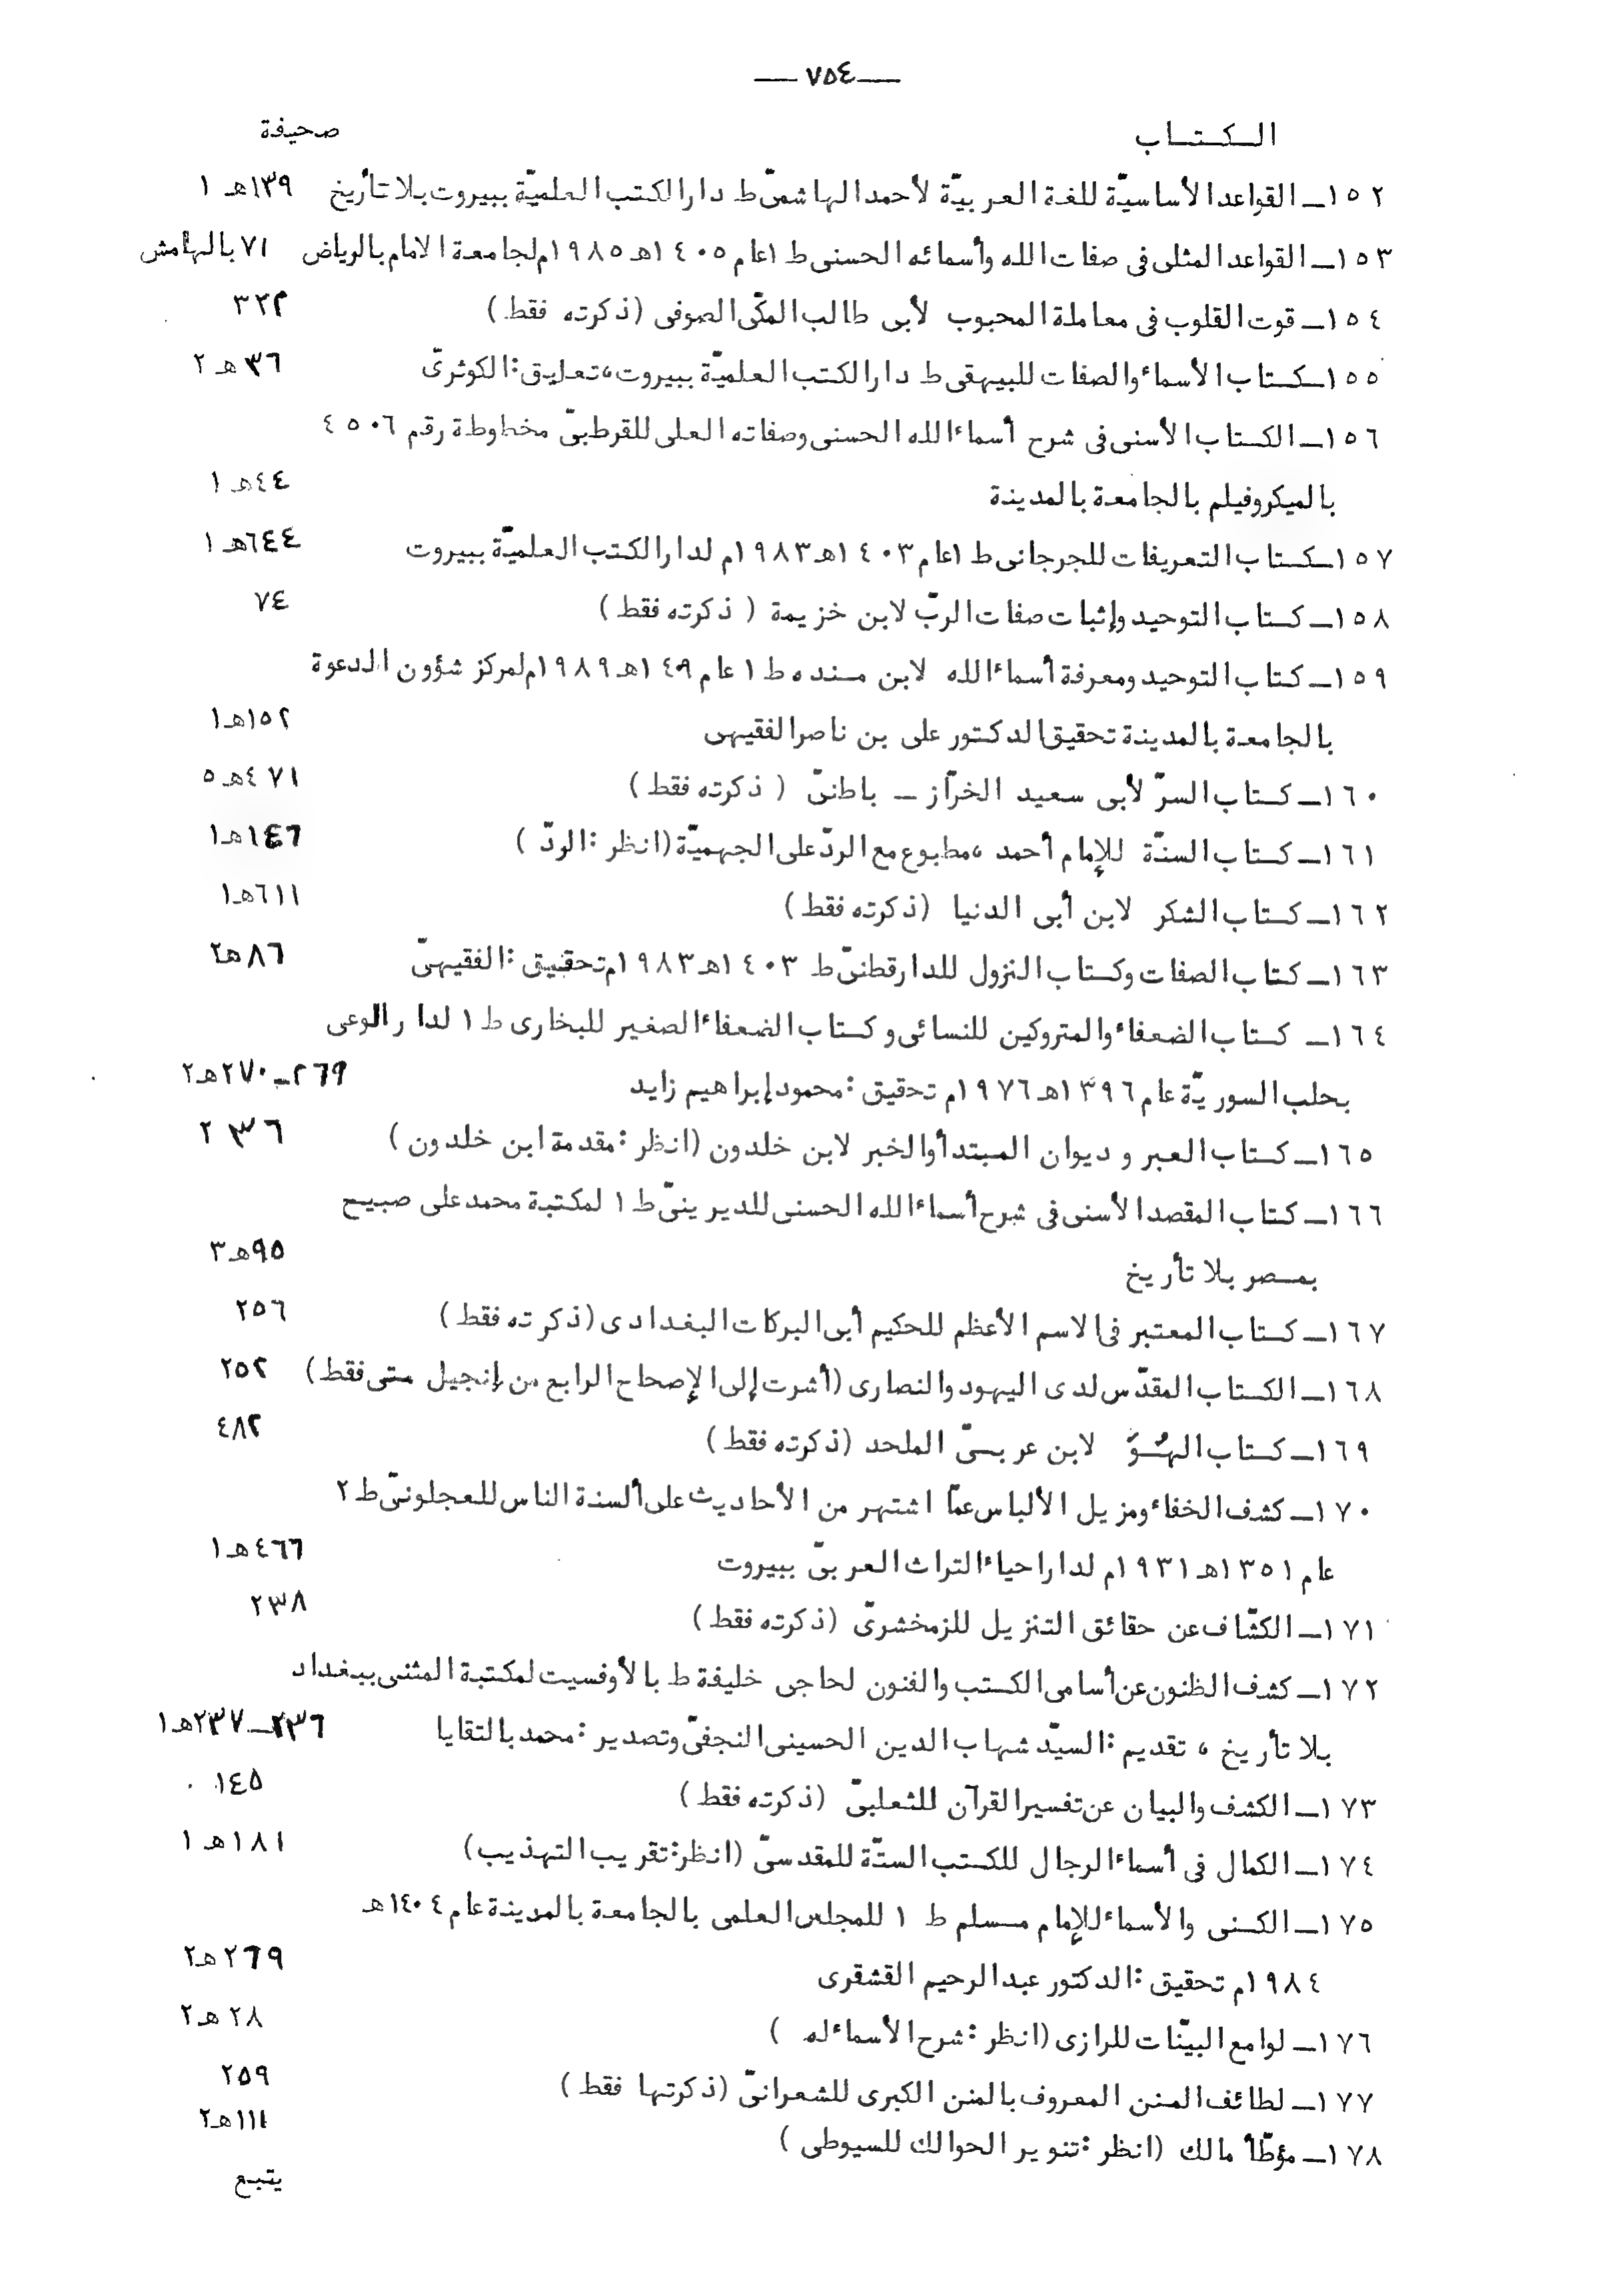 — ٧٥٤ —
الـكـتـاب صحيفة
١٥٢ـ القواعد الأساسيّة للغة العربيّة لأحمد الهاشمىّ ط دار الكتب العلميّة ببيروت بلا تأريخ ١٣٩هـ ١
١٥٣ـ القواعد المثلى فى صفات الله وأسمائه الحسنى ط ١ عام ١٤٠٥هـ ١٩٨٥م لجامعة الامام بالرياض ٧١ بالهامش
١٥٤ـ قوت القلوب فى معاملة المحبوب لأبى طالب المكّى الصوفى (ذكرته فقط)
١٥٥ـ كتاب الأسماء والصفات للبيهقى ط دار الكتب العلميّة ببيروت، تعليق: الكوثرىّ ٣٦ هـ ٢
١٥٦ـ الكتاب الأسنى فى شرح أسماء الله الحسنى وصفاته العلى للقرطبىّ مخطوطة رقم ٤٥٠٦
بالميكروفيلم بالجامعة بالمدينة ٤٤هـ ١
١٥٧ـ كتاب التعريفات للجرجانى ط ١ عام ١٤٠٣هـ ١٩٨٣م لدار الكتب العلميّة ببيروت ٦٤٤هـ ١
١٥٨ـ كتاب التوحيد وإثبات صفات الربّ لابن خزيمة ( ذكرته فقط) ٧٤
١٥٩ـ كتاب التوحيد ومعرفة أسماء الله لابن منده ط ١ عام ١٤٠٩هـ ١٩٨٩م لمركز شؤون الدعوة
بالجامعة بالمدينة تحقيق الدكتور على بن ناصر الفقيهى ١٥٢هـ١
١٦٠ـ كتاب السرّ لأبى سعيد الخرّاز ـ باطنىّ ( ذكرته فقط) ٤٧١هـ٥
١٦١ـ كتاب السنّة للإمام أحمد، مطبوع مع الردّ على الجهميّة (انظر: الردّ ) ١٤٦هـ١
١٦٢ـ كتاب الشكر لابن أبى الدنيا (ذكرته فقط) ٦١١هـ١
١٦٣ـ كتاب الصفات وكتاب النزول للدارقطنىّ ط ١٤٠٣هـ ١٩٨٣م تحقيق: الفقيهىّ ٨٦هـ٢
١٦٤ـ كتاب الضعفاء والمتروكين للنسائى وكتاب الضعفاء الصغير للبخارى ط ١ لدار الوعى
بحلب السوريّة عام ١٣٩٦هـ ١٩٧٦م تحقيق: محمود إبراهيم زايد ٢٦٩ـ٢٧٠هـ٢
١٦٥ـ كتاب العبر وديوان المبتدأ والخبر لابن خلدون (انظر: مقدمة ابن خلدون ) ٢٣٦
١٦٦ـ كتاب المقصد الأسنى فى شرح أسماء الله الحسنى للديرينىّ ط ١ لمكتبة محمد على صبيح
بمصر بلا تأريخ ٩٥هـ٣
١٦٧ـ كتاب المعتبر فى الاسم الأعظم للحكيم أبى البركات البغدادى (ذكرته فقط) ٢٥٦
١٦٨ـ الكتاب المقدّس لدى اليهود والنصارى (أشرت إلى الإصحاح الرابع من إنجيل متى فقط) ٢٥٢
١٦٩ـ كتاب الهُوَّ لابن عربىّ الملحد (ذكرته فقط) ٤٨٢
١٧٠ـ كشف الخفاء ومزيل الألباس عمّا اشتهر من الأحاديث على ألسنة الناس للعجلونىّ ط ٢
عام ١٣٥١هـ ١٩٣١م لدار احياء التراث العربىّ ببيروت ٤٦٦هـ ١
١٧١ـ الكشّاف عن حقائق التنزيل للزمخشرىّ (ذكرته فقط) ٢٣٨
١٧٢ـ كشف الظنون عن أسامى الكتب والفنون لحاجى خليفة ط بالأوفسيت لمكتبة المثنى ببغداد
بلا تأريخ ، تقديم: السيّد شهاب الدين الحسينى النجفىّ وتصدير: محمد بالتقايا ٢٣٦ـ٢٣٧هـ١
١٧٣ـ الكشف والبيان عن تفسير القرآن للثعلبىّ (ذكرته فقط) ١٤٥
١٧٤ـ الكمال فى أسماء الرجال للكتب الستّة للمقدسىّ (انظر: تقريب التهذيب) ١٨١هـ ١
١٧٥ـ الكنى والأسماء للإمام مسلم ط ١ للمجلس العلمى بالجامعة بالمدينة عام ١٤٠٤هـ
١٩٨٤م تحقيق: الدكتور عبد الرحيم القشقرى ٢٦٩هـ٢
١٧٦ـ لوامع البيّنات للرازى (انظر: شرح الأسماء له ) ٢٨هـ٢
١٧٧ـ لطائف المنن المعروف بالمنن الكبرى للشعرانىّ (ذكرتها فقط) ٢٥٩
١٧٨ـ مؤطّأ مالك (انظر: تنوير الحوالك للسيوطى ) ١١١هـ٢
يتبع